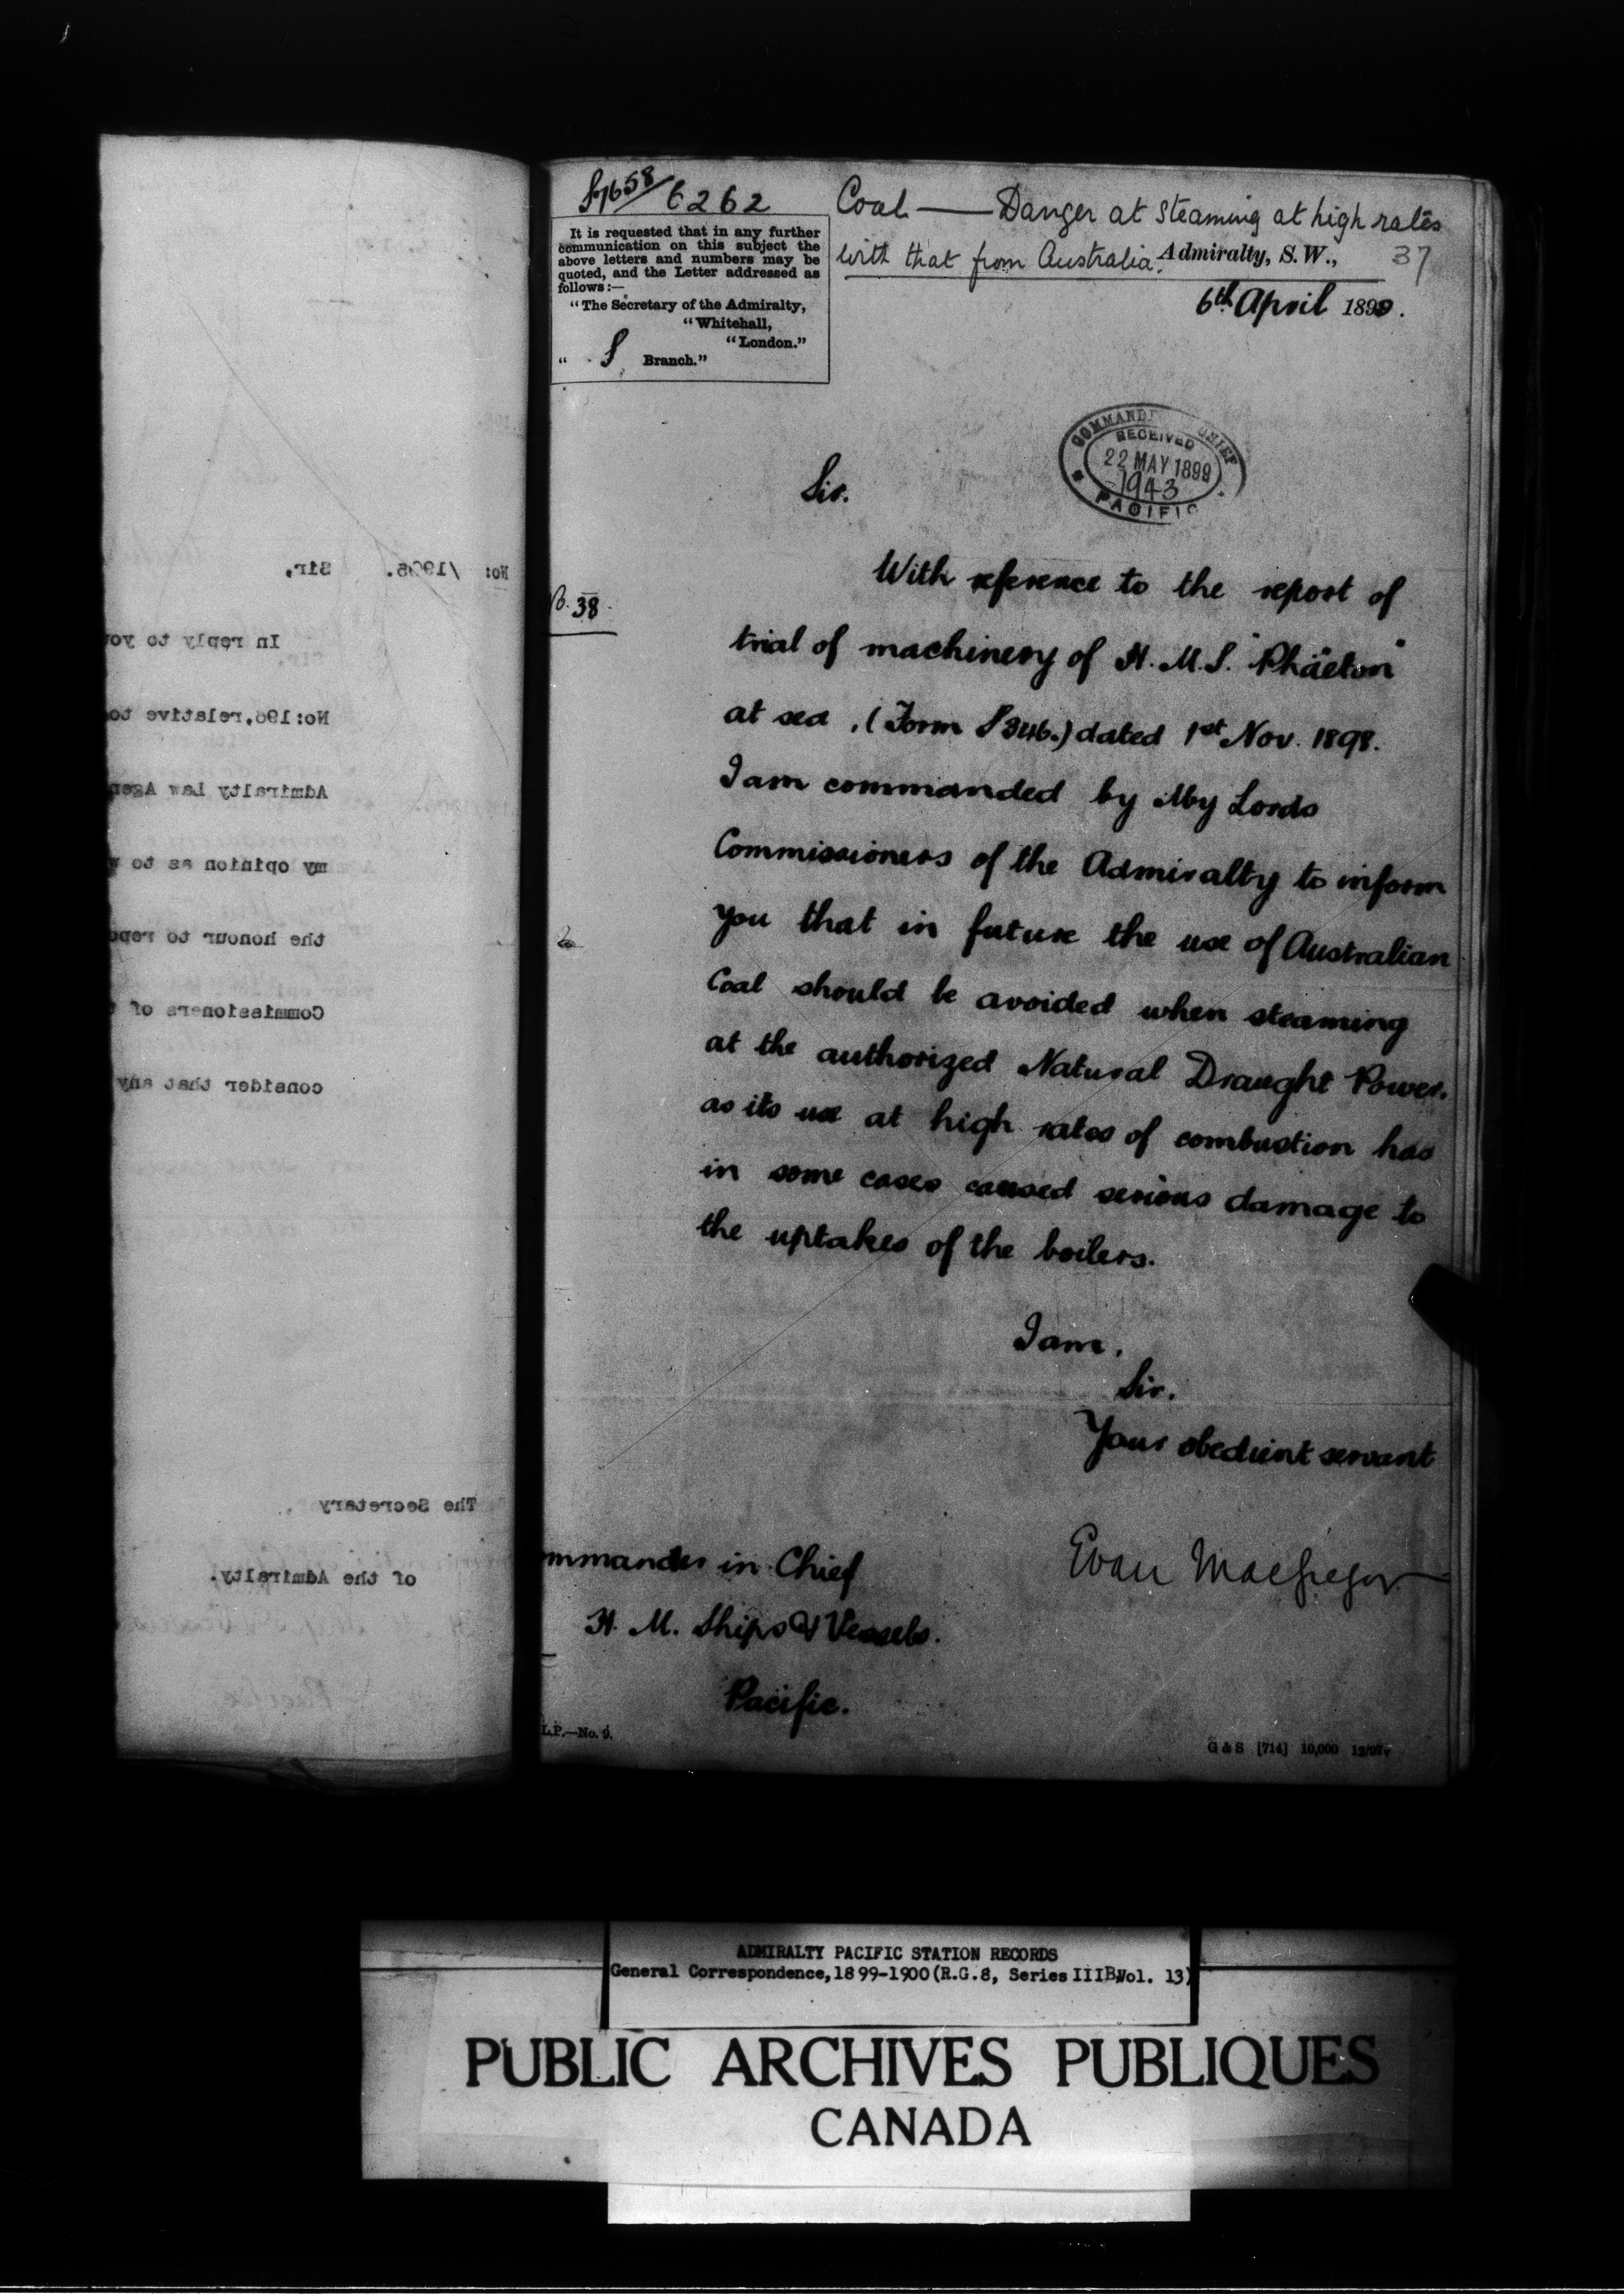 S7658/6262
Coal — Danger at steaming at high rates
with that from Australia.
Admiralty, S.W.,
37
6th April 1899.
It is requested that in any further
communication on this subject the
above letters and numbers may be
quoted, and the Letter addressed as
follows:—
"The Secretary of the Admiralty,
"Whitehall,
"London."
" S Branch."
COMMANDE CHIEF
RECEIVED
22 MAY 1899
1943
PACIFIC
Sir.
No. 38.
With reference to the report of
trial of machinery of H.M.S. "Phäeton"
at sea, (Form S346.) dated 1st Nov. 1898.
I am commanded by My Lords
Commissioners of the Admiralty to inform
you that in future the use of Australian
Coal should be avoided when steaming
at the authorized Natural Draught Power.
as its use at high rates of combustion has
in some cases caused serious damage to
the uptakes of the boilers.
I am,
Sir.
Your obedient servant
Evan MacGregor
ommander in Chief
H. M. Ships & Vessels.
Pacific.
L.P.—No. 9.
G & S [714] 10,000 12/97
No: /1906. Sir,
In reply to yo
No:196,relative to
Admiralty Law Agen
my opinion as to w
the honour to repo
Commissioners of t
consider that any
The Secretary
of the Admiralty.
ADMIRALTY PACIFIC STATION RECORDS
General Correspondence,1899-1900(R.G.8, Series IIIB,Vol. 13)
PUBLIC ARCHIVES PUBLIQUES
CANADA